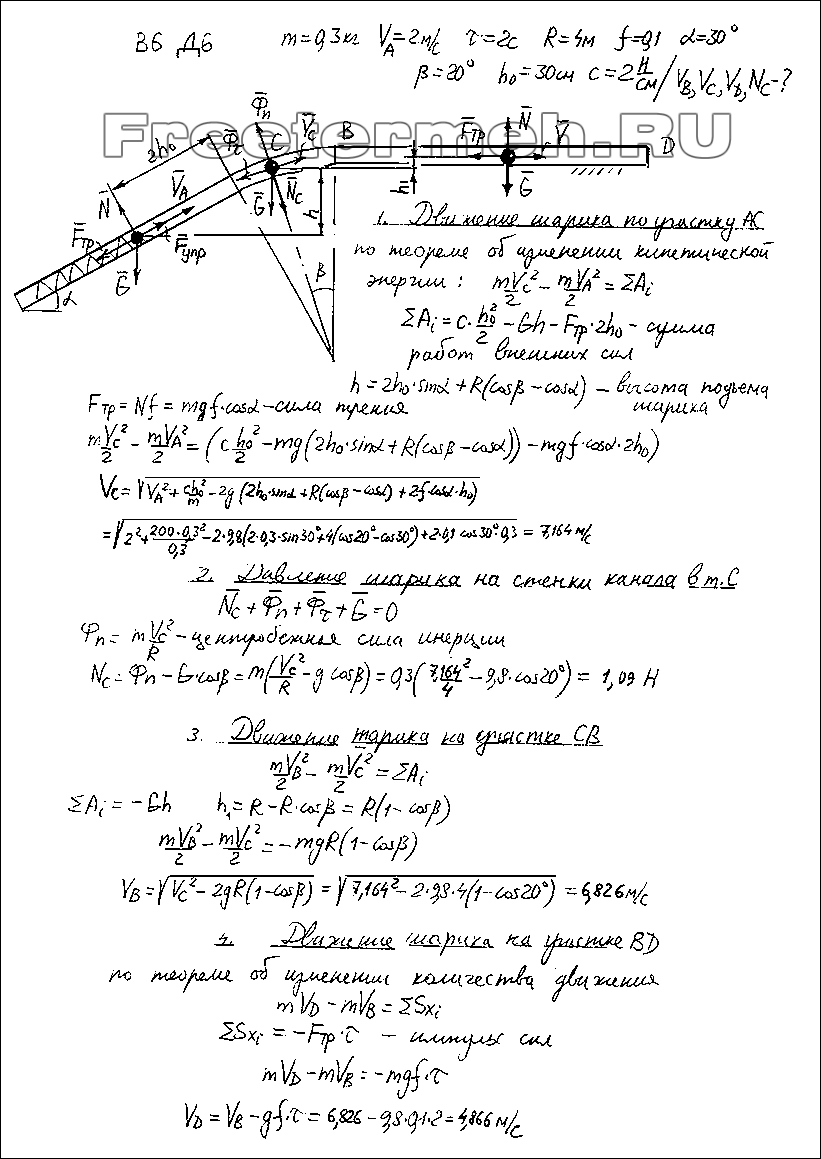 В6 Д6 m=0,3кг V_A=2м/с τ=2с R=4м f=0,1 α=30°
β=20° h₀=30см c=2Н/см / V_B, V_C, V_D, N_C-?
Freetermeh.RU
Φ̄n V̄c
2h₀ Φ̄τ C B F̄тр N̄ V̄ D
N̄ V̄_A Ḡ N̄c h h Ḡ
F̄тр F̄упр
α Ḡ β
1. Движение шарика по участку АС
по теореме об изменении кинетической
энергии: mVc²/2 - mV_A²/2 = ΣAi
ΣAi = c·h₀²/2 - Gh - Fтр·2h₀ - сумма
работ внешних сил
h = 2h₀·sinα + R(cosβ - cosα) - высота подъема
шарика
Fтр = Nf = mgf·cosα - сила трения
mVc²/2 - mV_A²/2 = (c h₀²/2 - mg(2h₀·sinα + R(cosβ - cosα)) - mgf·cosα·2h₀)
Vc = √(V_A² + ch₀²/m - 2g(2h₀·sinα + R(cosβ - cosα) + 2f·cosα·h₀)
= √(2² + 200·0,3²/0,3 - 2·9,8(2·0,3·sin30° + 4(cos20° - cos30°) + 2·0,1 cos30° 0,3) = 7,164 м/с
2. Давление шарика на стенки канала в т. С
N̄c + Φ̄n + Φ̄τ + Ḡ = 0
Φn = mVc²/R - центробежная сила инерции
Nc = Φn - G·cosβ = m(Vc²/R - g cosβ) = 0,3(7,164²/4 - 9,8·cos20°) = 1,09 Н
3. Движение шарика на участке СВ
mV_B²/2 - mVc²/2 = ΣAi
ΣAi = -Gh h₁ = R - R·cosβ = R(1 - cosβ)
mV_B²/2 - mVc²/2 = -mgR(1 - cosβ)
V_B = √(Vc² - 2gR(1 - cosβ)) = √(7,164² - 2·9,8·4(1 - cos20°)) = 6,826 м/с
4. Движение шарика на участке BD
по теореме об изменении количества движения
mV_D - mV_B = ΣSxi
ΣSxi = -Fтр·τ - импульс сил
mV_D - mV_B = -mgf·τ
V_D = V_B - gf·τ = 6,826 - 9,8·0,1·2 = 4,866 м/с